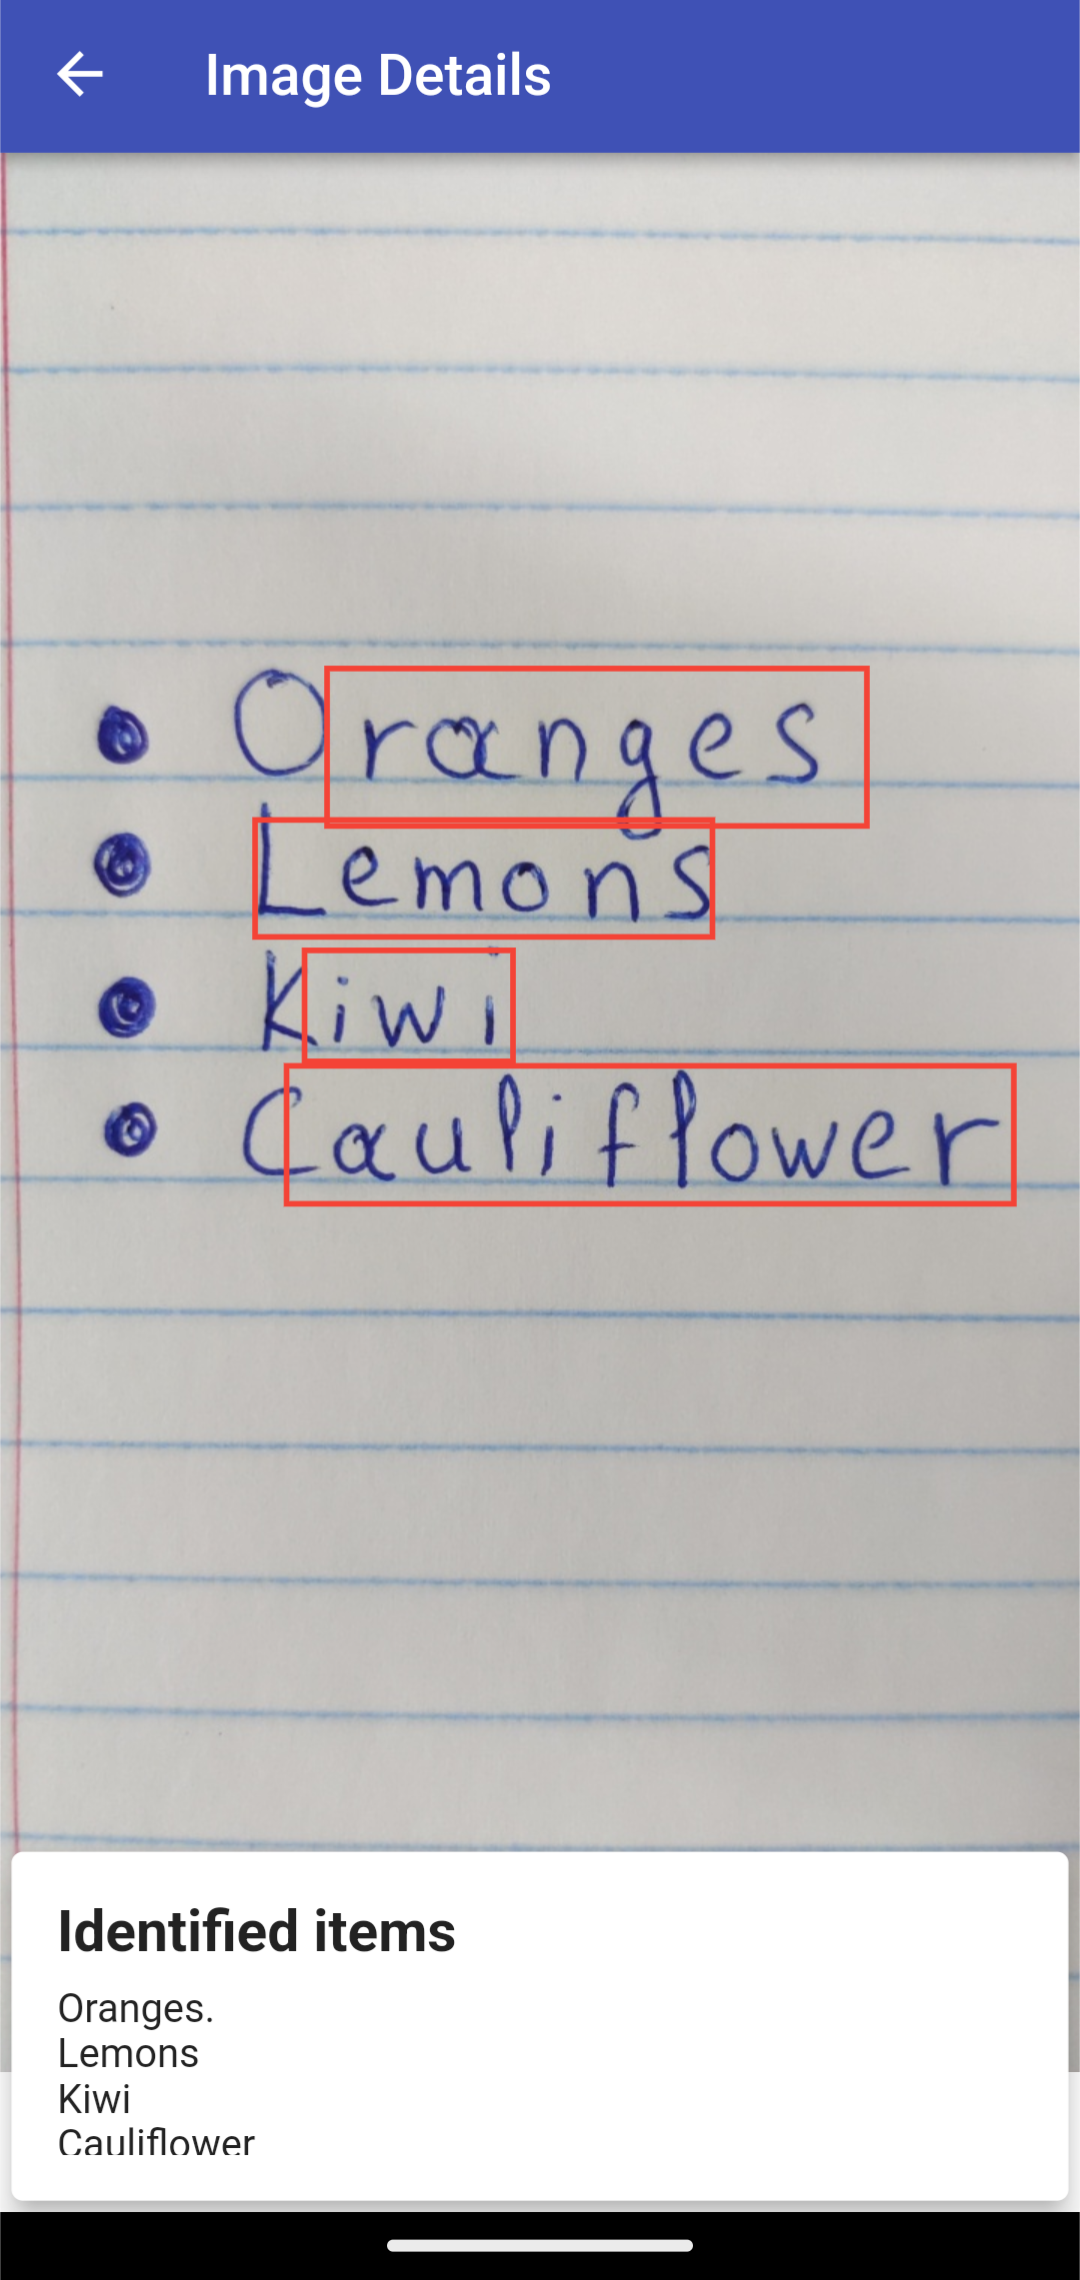 Image Details
• Oranges
• Lemons
• Kiwi
• Cauliflower
Identified items
Oranges.
Lemons
Kiwi
Cauliflower